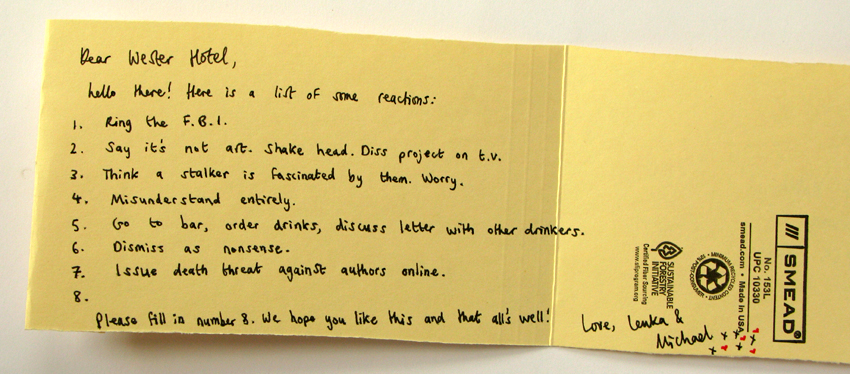 Dear Wester Hotel,
hello there! Here is a list of some reactions:
1. Ring the F.B.I.
2. Say it's not art. Shake head. Diss project on t.v.
3. Think a stalker is fascinated by them. Worry.
4. Misunderstand entirely.
5. Go to bar, order drinks, discuss letter with other drinkers.
6. Dismiss as nonsense.
7. Issue death threat against authors online.
8.
Please fill in number 8. We hope you like this and that all's well!
Love, Lenka &
Michael x x x x
SUSTAINABLE
FORESTRY
INITIATIVE
Certified Fiber Sourcing
www.sfiprogram.org
SMEAD®
No. 153L
UPC 10330
smead.com • Made in USA